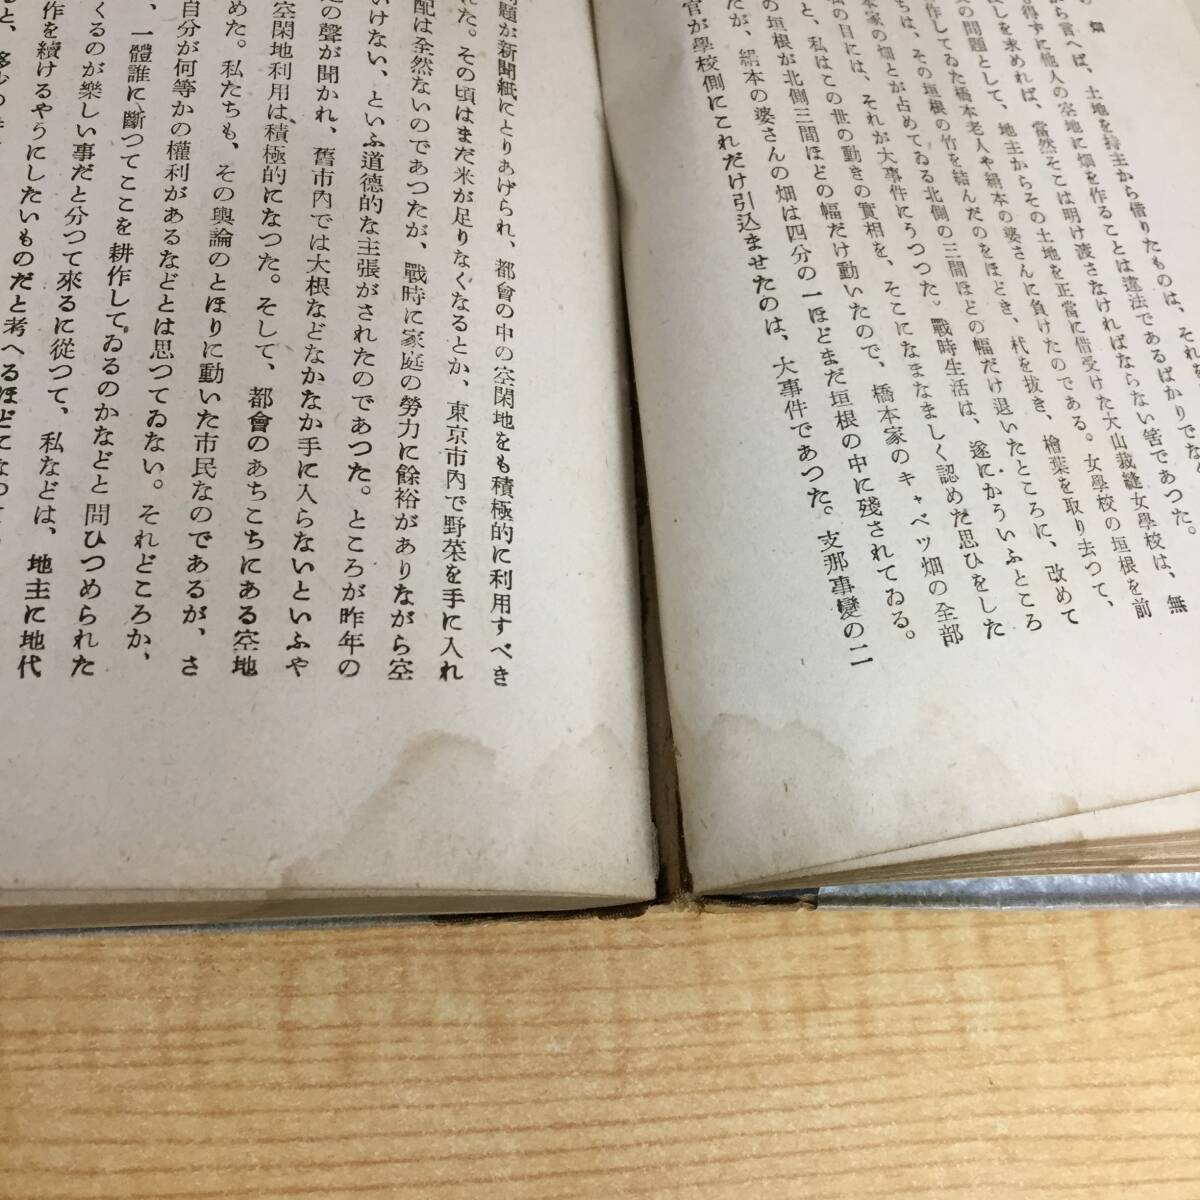 の 畑
ら言へば、土地を持主から借りたものは、それを
も得ずに他人の空地に畑を作ることは違法であるばかりでな
しを求めれば、當然そこは明け渡さなければならない筈であつた。
の問題として、地主からその土地を正當に借受けた大山裁縫女學校は、無
作してゐた橋本老人や絹本の婆さんに負けたのである。女學校の垣根を前
ちは、その垣根の竹を結んだのをほどき、杙を抜き、檜葉を取り去つて、
本家の畑とが占めてゐる北側の三間ほどの幅だけ退いたところに、改めて
の日には、それが大事件にうつつた。戰時生活は、遂にかういふところ
と、私はこの世の動きの實相を、そこになまなましく認めた思ひをした
の垣根が北側三間ほどの幅だけ動いたので、橋本家のキャベツ畑の全部
たが、絹本の婆さんの畑は四分の一ほどまだ垣根の中に殘されてゐる。
官が學校側にこれだけ引込ませたのは、大事件であつた。支那事變の二
問題が新聞紙にとりあげられ、都會の中の空閑地をも積極的に利用すべき
れた。その頃はまだ米が足りなくなるとか、東京市內で野菜を手に入れ
配は全然ないのであつたが、戰時に家庭の勞力に餘裕がありながら空
いけない、といふ道德的な主張がされたのであつた。ところが昨年の
の聲が聞かれ、舊市內では大根などなかなか手に入らないといふや
空閑地利用は、積極的になつた。そして、都會のあちこちにある空地
めた。私たちも、その輿論のとほりに動いた市民なのであるが、さ
自分が何等かの權利があるなどとは思つてゐない。それどころか、
、一體誰に斷つてここを耕作してゐるのかなどと問ひつめられた
くるのが樂しい事だと分つて來るに從つて、私などは、地主に地代
作を續けるやうにしたいものだと考へるほどになつ